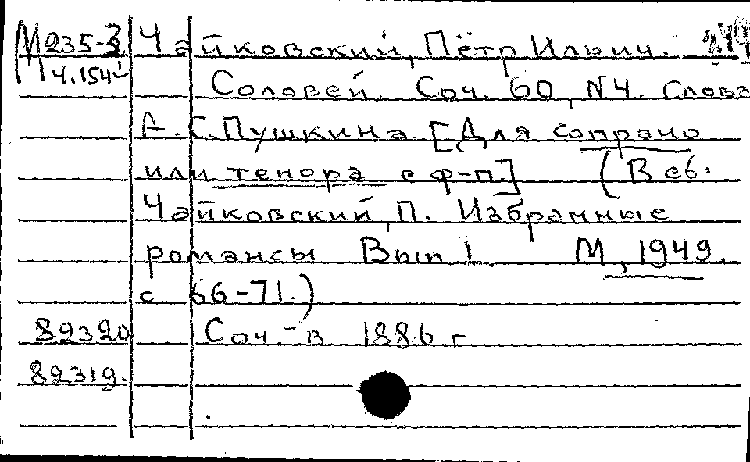 М235-3 Чайковский, Пётр Ильич.
Ч.154 Соловей. Соч. 60, N4. Слова
А. С. Пушкина [Для сопрано
или тенора с ф-п.] (В сб.
Чайковский, П. Избранные
романсы Вып 1 М, 1949.
с 66-71.)
82320 Соч.-в 1886 г
82319.